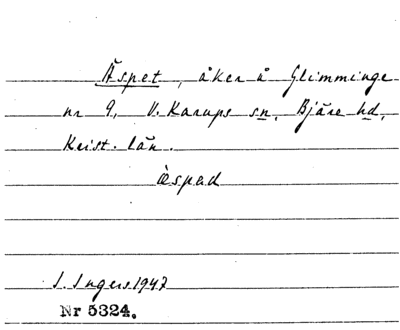 Äspet, åker å Glimminge
nr 9, V. Karups sn, Bjäre hd,
Krist. län.
æspad
I. Ingers 1947
Nr 5324.